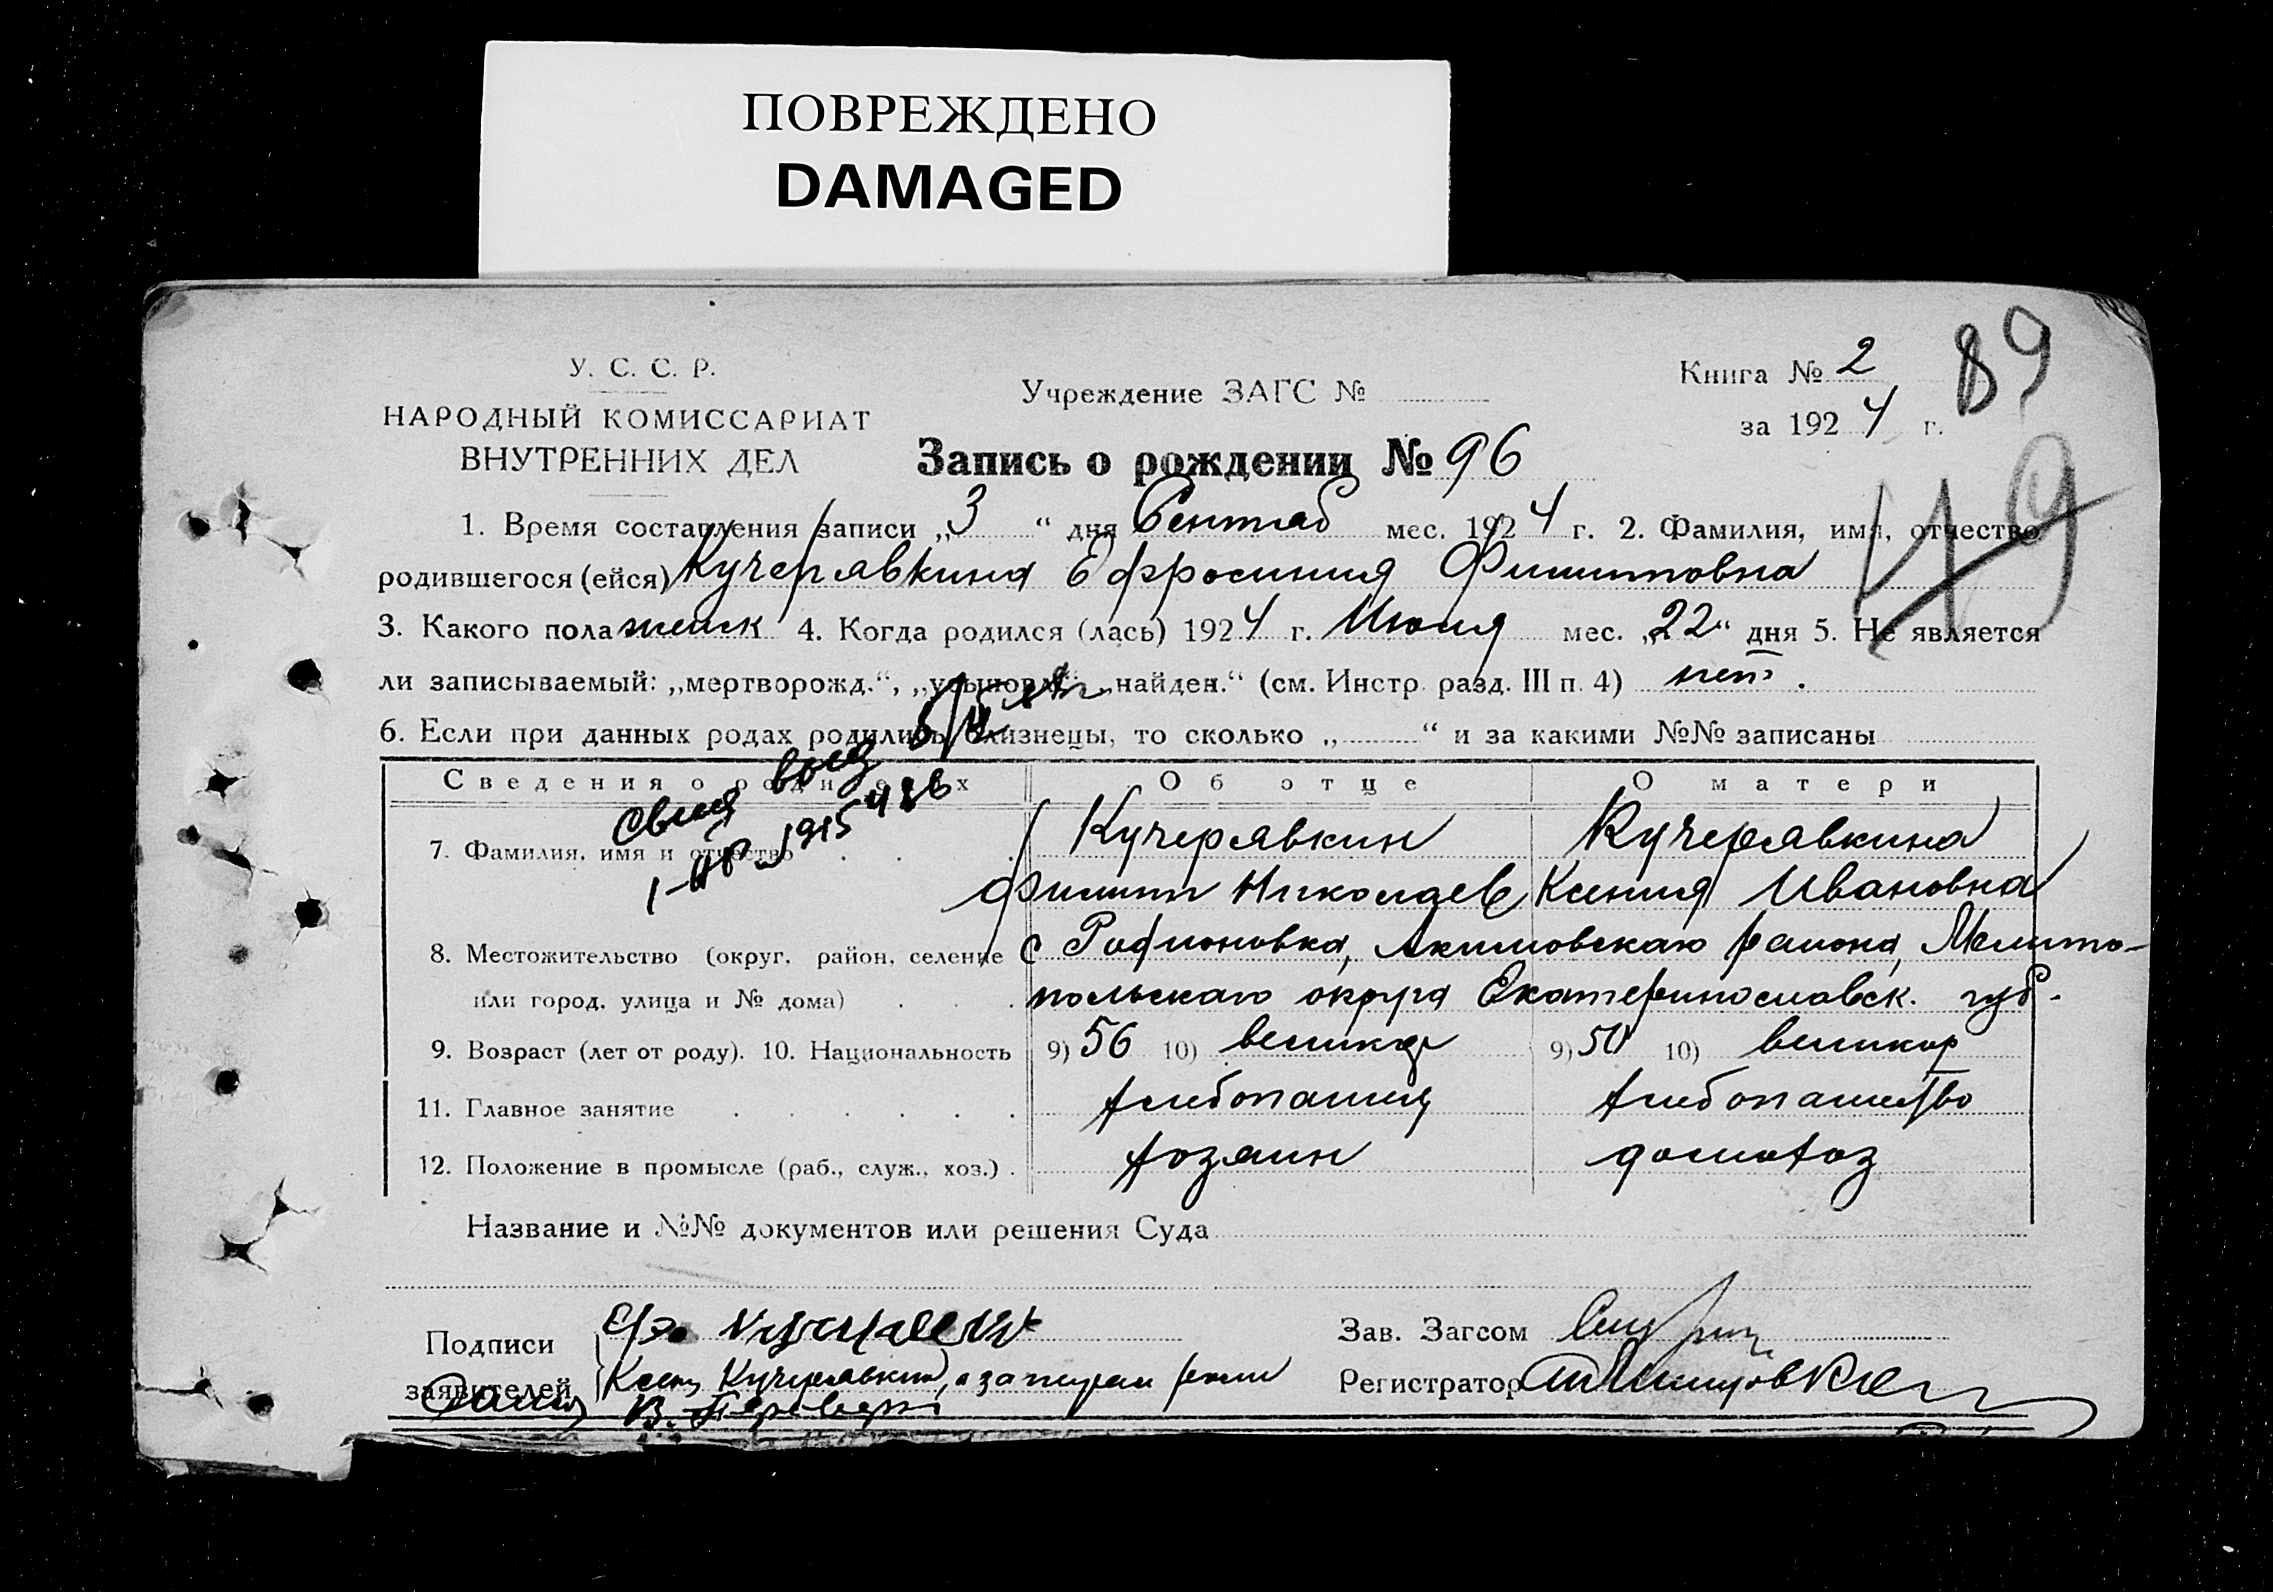 ПОВРЕЖДЕНО
DAMAGED
У. С. С. Р.
НАРОДНЫЙ КОМИССАРИАТ
ВНУТРЕННИХ ДЕЛ
Учреждение ЗАГС №
Книга № 2
за 1924 г.
89
49
Запись о рождении № 96
1. Время составления записи „3“ дня Сентяб мес. 1924 г. 2. Фамилия, имя, отчество
родившегося (ейся) Кучерявкина Ефросиния Филипповна
3. Какого пола женск 4. Когда родился (лась) 1924 г. Июня мес. „22“ дня 5. Не является
ли записываемый: „мертворожд.“, „усыновл.“ „найден.“ (см. Инстр. разд. III п. 4) нет.
6. Если при данных родах родились близнецы, то сколько „ “ и за какими №№ записаны
Сведения о родителях Об отце О матери
7. Фамилия, имя и отчество Кучерявкин Кучерявкина
Филипп Николаев Ксения Ивановна
8. Местожительство (округ, район, селение с Родионовка, Акимовскаго района, Мелито-
или город, улица и № дома) польскаго округа Екатеринославск. губ.
9. Возраст (лет от роду). 10. Национальность 9) 56 10) великор 9) 50 10) великор
11. Главное занятие хлебопашец хлебопашество
12. Положение в промысле (раб., служ., хоз.) хозяин домохоз
свид выд
Название и №№ документов или решения Суда
Подписи
заявителей
Зав. Загсом
Регистратор